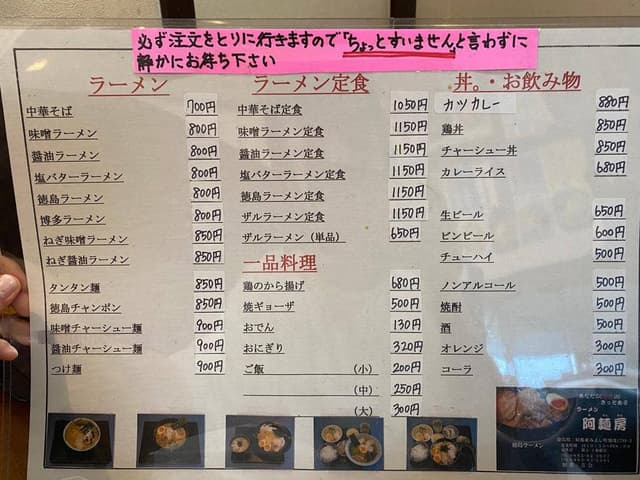 必ず注文をとりに行きますので「ちょっとすいません」と言わずに
静かにお待ち下さい
ラーメン
中華そば 700円
味噌ラーメン 800円
醤油ラーメン 800円
塩バターラーメン 800円
徳島ラーメン 800円
博多ラーメン 800円
ねぎ味噌ラーメン 850円
ねぎ醤油ラーメン 850円
タンタン麺 850円
徳島チャンポン 850円
味噌チャーシュー麺 900円
醤油チャーシュー麺 900円
つけ麺 900円
ラーメン定食
中華そば定食 1050円
味噌ラーメン定食 1150円
醤油ラーメン定食 1150円
塩バターラーメン定食 1150円
徳島ラーメン定食 1150円
ザルラーメン定食 1150円
ザルラーメン（単品） 650円
一品料理
鶏のから揚げ 680円
焼ギョーザ 500円
おでん 130円
おにぎり 320円
ご飯 （小） 200円
（中） 250円
（大） 300円
丼。・お飲み物
カツカレー 880円
鶏丼 850円
チャーシュー丼 850円
カレーライス 680円
生ビール 650円
ビンビール 600円
チューハイ 500円
ノンアルコール 500円
焼酎 500円
酒 500円
オレンジ 300円
コーラ 300円
ラーメン
阿麺房
徳島ラーメン